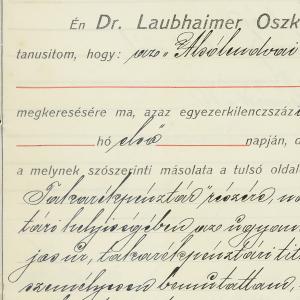 Én Dr. Laubhaimer Oszk
tanusitom, hogy: az „Alsólendvai
megkeresésére ma, azaz egyezerkilenczszáz
hó első napján, d
a melynek szószerinti másolata a tulsó oldal
Takarékpénztár" részére,
tári helyiségében az ugyan
jas úr, takarékpénztári tit
személyesen bemutattam,